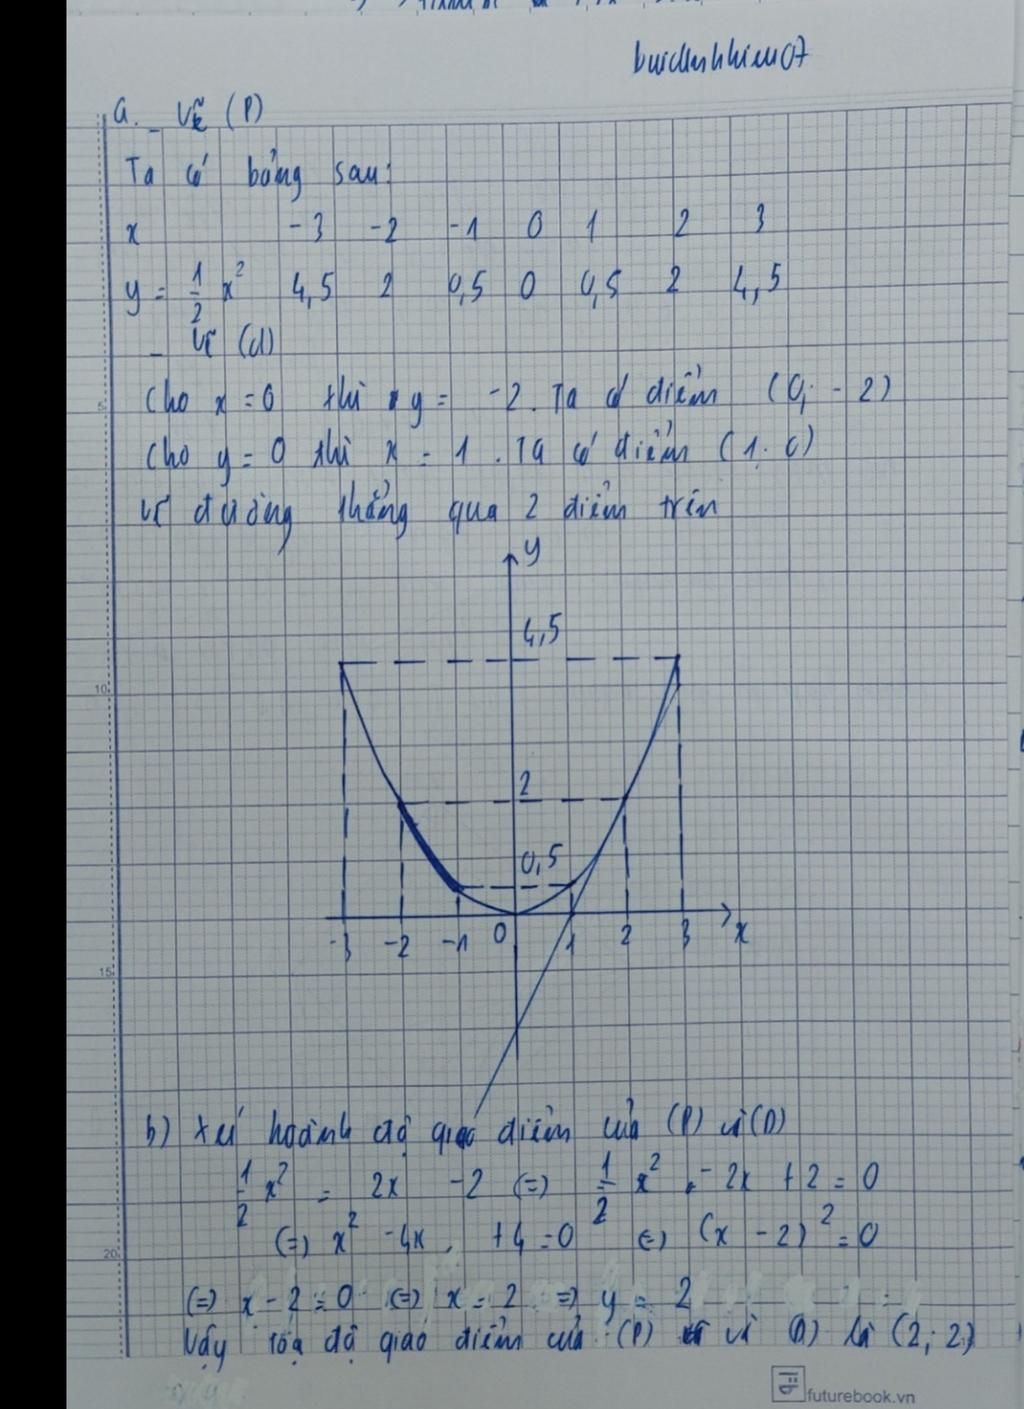 a. _ Vẽ (P)
Ta có bảng sau:
x -3 -2 -1 0 1 2 3
y = 1/2 x² 4,5 2 0,5 0 0,5 2 4,5
_ Vẽ (d)
Cho x = 0 thì y = -2. Ta có điểm (0; -2)
Cho y = 0 thì x = 1. Ta có điểm (1; 0)
Vẽ đường thẳng qua 2 điểm trên
y
4,5
2
0,5
-3 -2 -1 0 1 2 3 x
b) Xét hoành độ giao điểm của (P) và (D)
1/2 x² = 2x - 2 (=) 1/2 x² - 2x + 2 = 0
(=) x² - 4x + 4 = 0 (=) (x - 2)² = 0
(=) x - 2 = 0 (=) x = 2 => y = 2
Vậy tọa độ giao điểm của (P) và (D) là (2; 2)
futurebook.vn